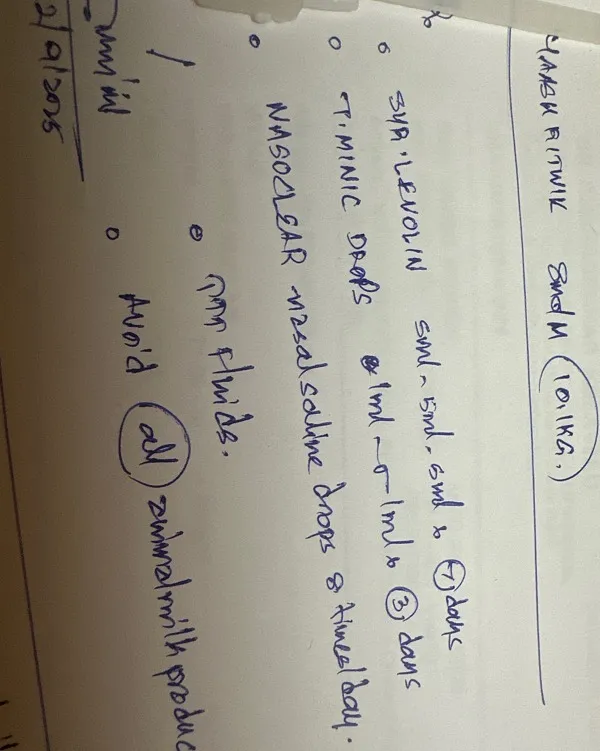 YAASH RITWIK 8mo/M (10.1KG.)
SYR. LEVOLIN 5ml - 5ml - 5ml x 7 days
T. MINIC DROPS 1ml - 0 - 1ml x 3 days
NASOCLEAR nasal saline drops 8 times/day.
fluids.
Avoid all animal milk produc
2/9/2025